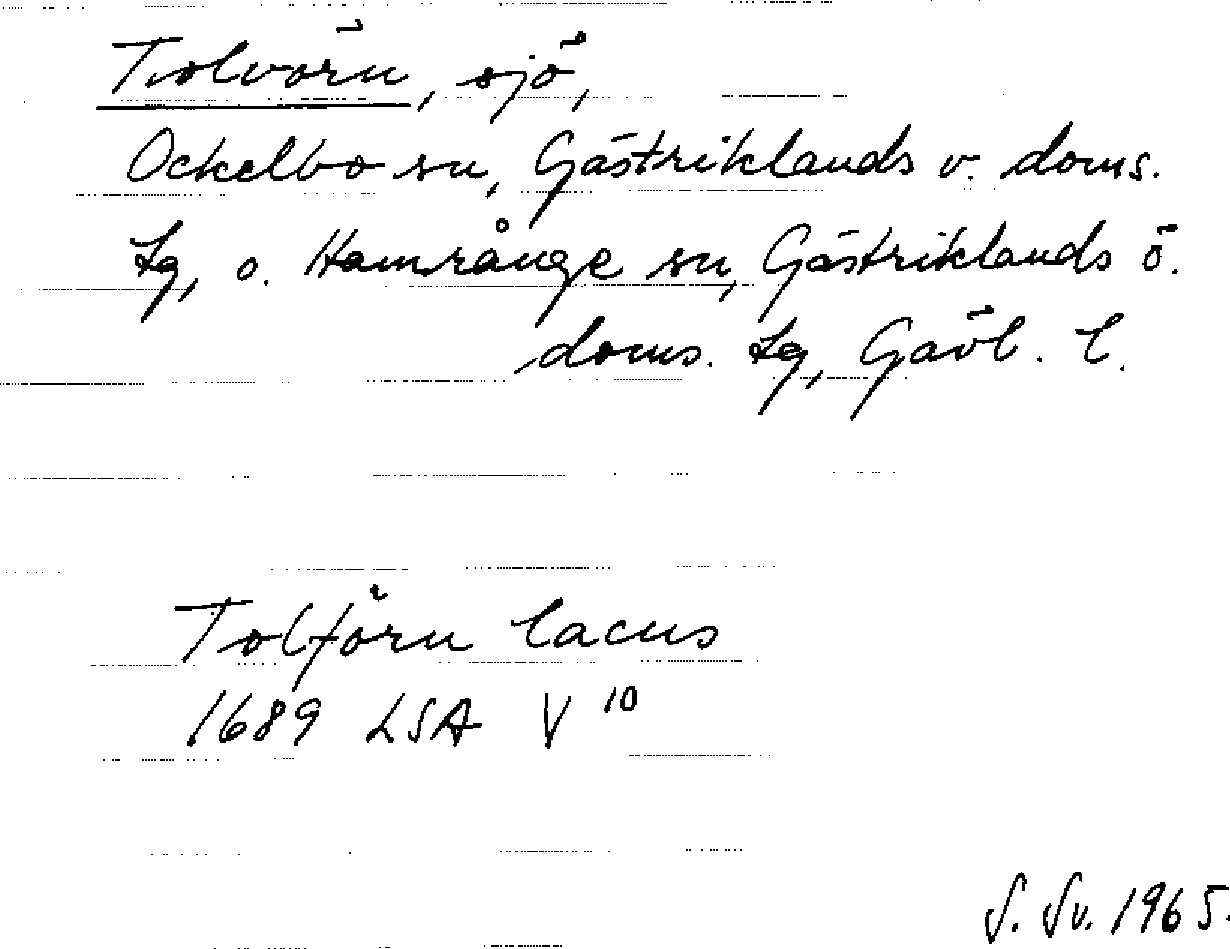 Tolvörn, sjö,
Ockelbo sn, Gästriklands v. doms.
lg, o. Hamrånge sn, Gästriklands ö.
doms. lg, Gävl. l.
Tolförn lacus
1689 LSA V 10
S. Sv. 1965.